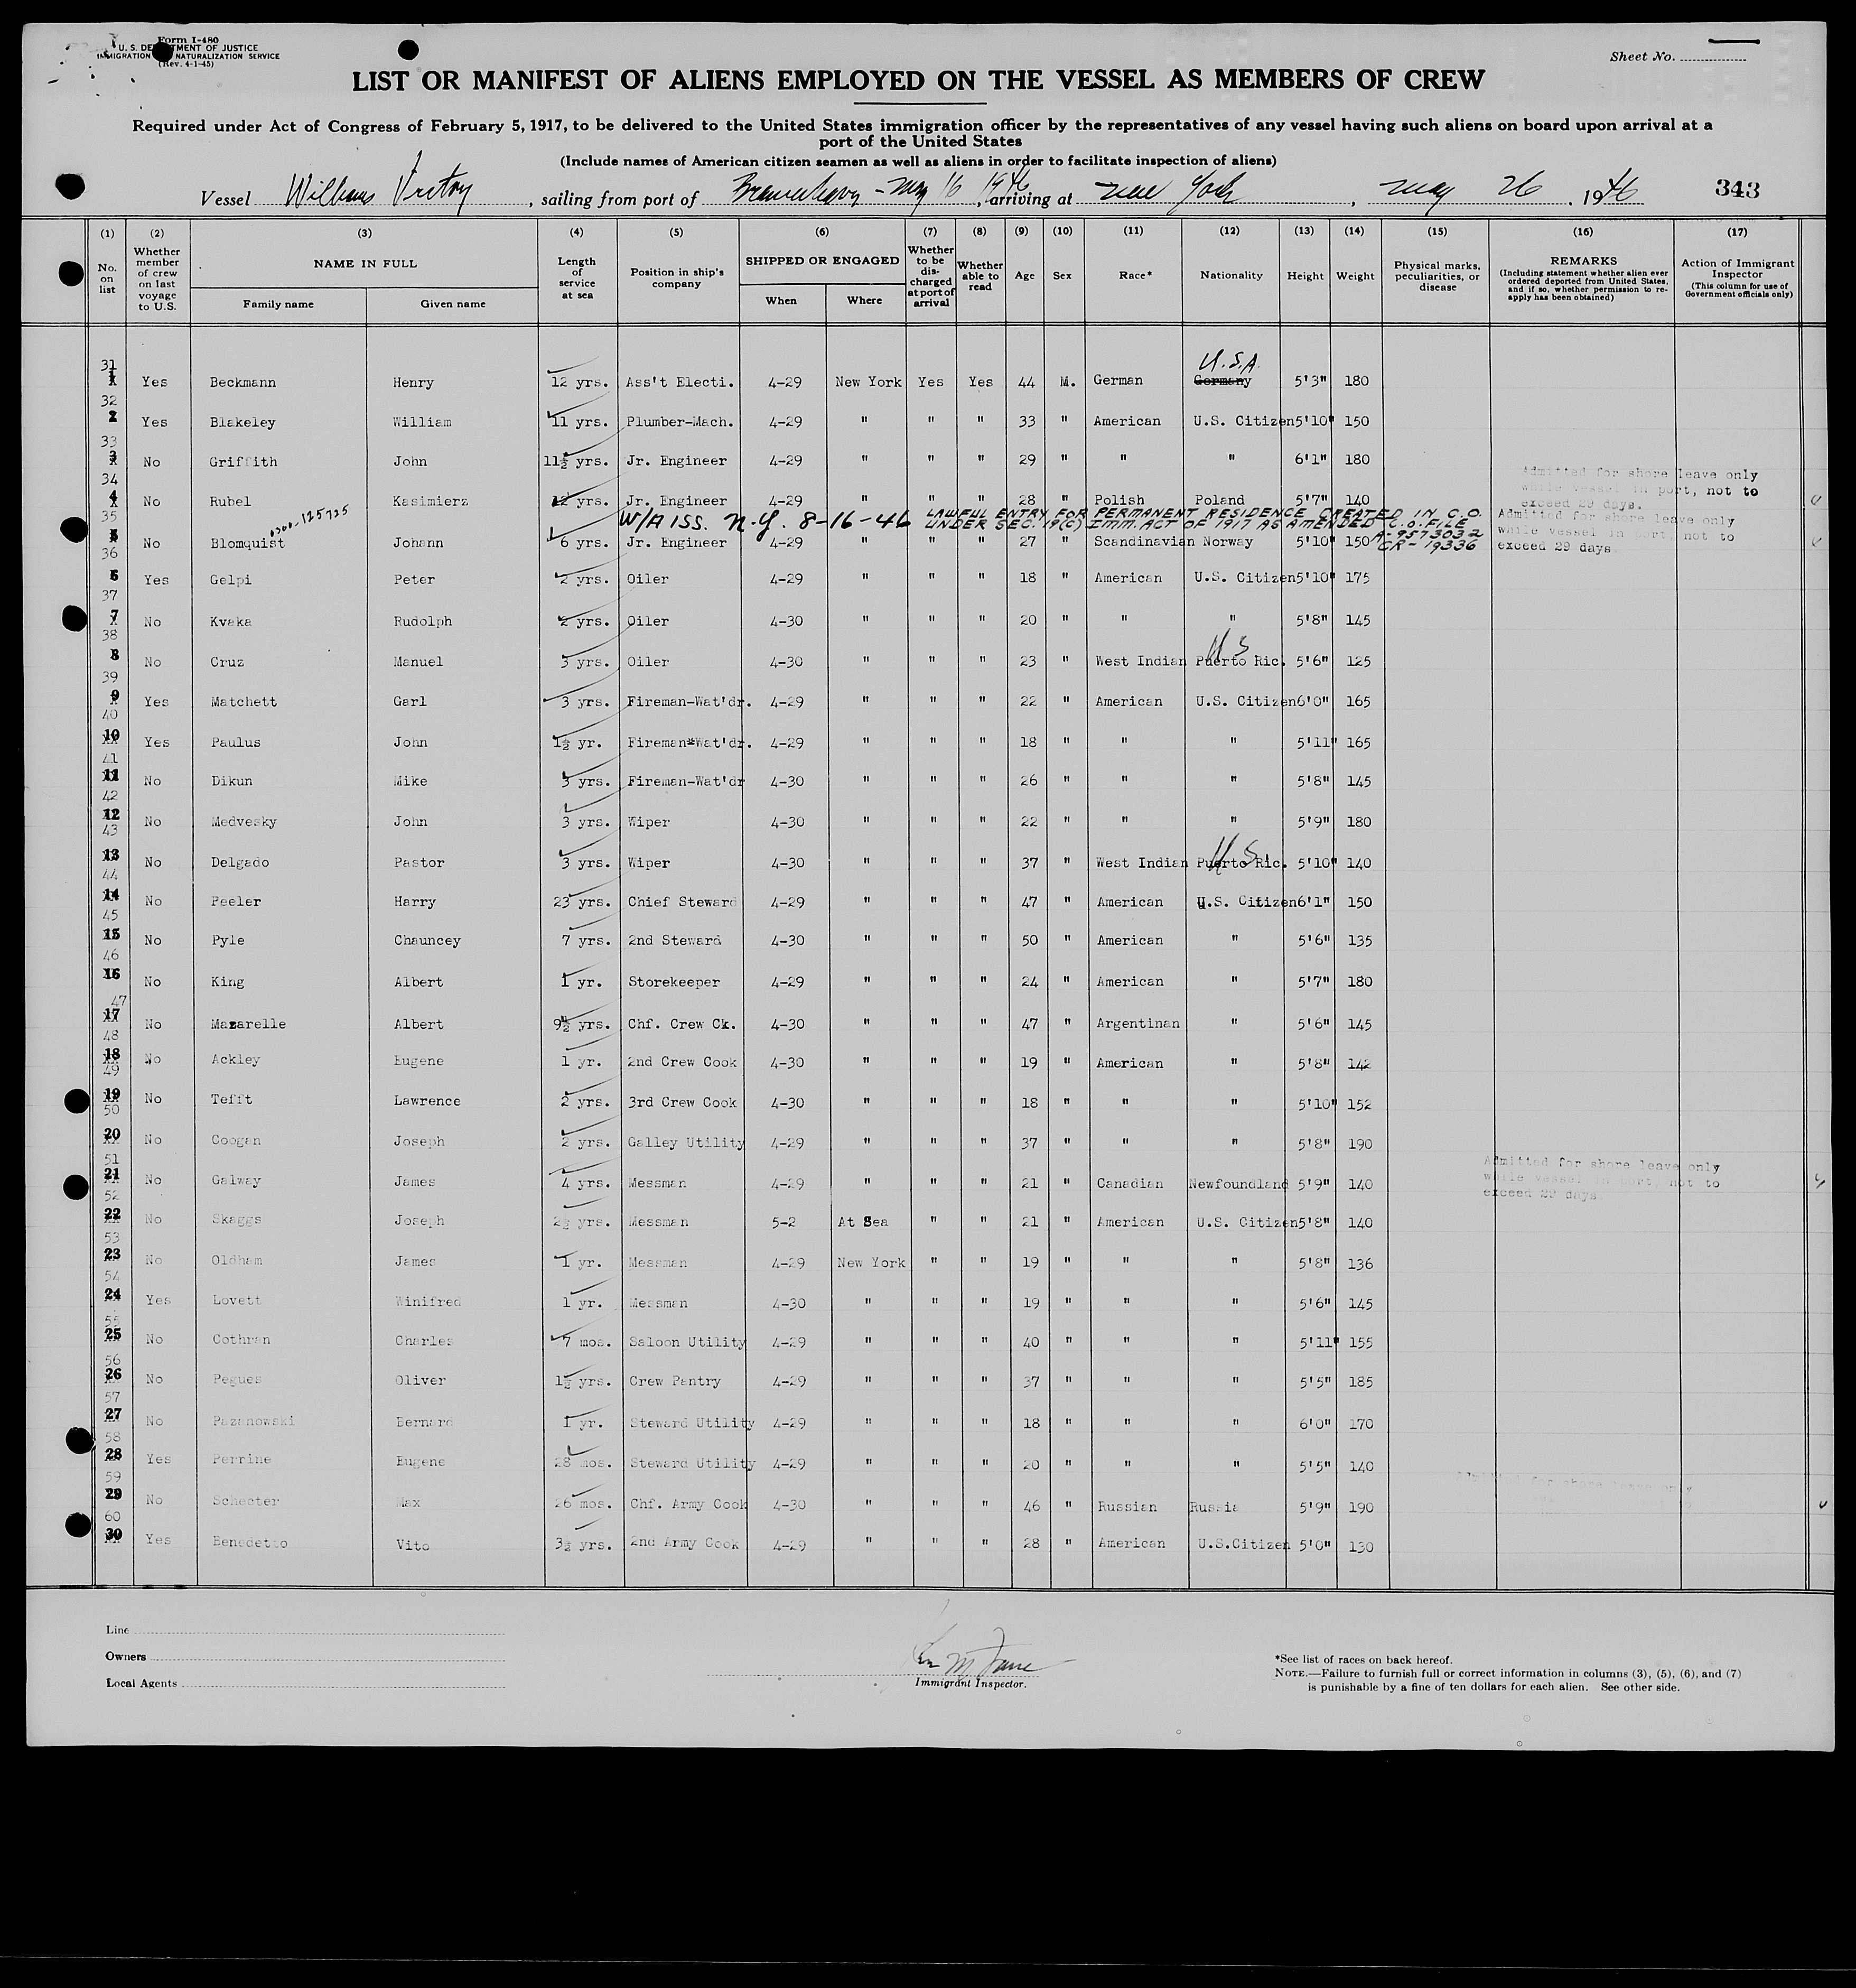 Form I-480
U. S. DEPARTMENT OF JUSTICE
IMMIGRATION NATURALIZATION SERVICE
(Rev. 4-1-45)
Sheet No.
LIST OR MANIFEST OF ALIENS EMPLOYED ON THE VESSEL AS MEMBERS OF CREW
Required under Act of Congress of February 5, 1917, to be delivered to the United States immigration officer by the representatives of any vessel having such aliens on board upon arrival at a
port of the United States
(Include names of American citizen seamen as well as aliens in order to facilitate inspection of aliens)
Vessel Williams Victory, sailing from port of Bremerhaven - May 16 1946, arriving at New York, May 26, 1946 343
(1) (2) (3) (4) (5) (6) (7) (8) (9) (10) (11) (12) (13) (14) (15) (16) (17)
No. on list Whether member of crew on last voyage to U.S. NAME IN FULL Length of service at sea Position in ship's company SHIPPED OR ENGAGED Whether to be discharged at port of arrival Whether able to read Age Sex Race* Nationality Height Weight Physical marks, peculiarities, or disease REMARKS (Including statement whether alien ever ordered deported from United States, and if so, whether permission to re-apply has been obtained) Action of Immigrant Inspector (This column for use of Government officials only)
Family name Given name When Where
U.S.A.
31 1 Yes Beckmann Henry 12 yrs. Ass't Electi. 4-29 New York Yes Yes 44 M. German Germany 5'3" 180
32 2 Yes Blakeley William 11 yrs. Plumber-Mach. 4-29 " " " 33 " American U.S. Citizen 5'10" 150
33 3 No Griffith John 11½ yrs. Jr. Engineer 4-29 " " " 29 " " " 6'1" 180
34 4 No Rubel Kasimierz 12 yrs. Jr. Engineer 4-29 " " " 28 " Polish Poland 5'7" 140 Admitted for shore leave only while vessel in port, not to exceed 29 days.
0300-125725 W/A ISS. N.Y. 8-16-46 LAWFUL ENTRY FOR PERMANENT RESIDENCE CREATED IN C.O.
UNDER SEC. 19(C) IMM. ACT OF 1917 AS AMENDED C.O. FILE
A-9573032
CR-19336
35 5 No Blomquist Johann 6 yrs. Jr. Engineer 4-29 " " " 27 " Scandinavian Norway 5'10" 150 Admitted for shore leave only while vessel in port, not to exceed 29 days
36 6 Yes Gelpi Peter 2 yrs. Oiler 4-29 " " " 18 " American U.S. Citizen 5'10" 175
37 7 No Kvaka Rudolph 2 yrs. Oiler 4-30 " " " 20 " " " 5'8" 145
U S
38 8 No Cruz Manuel 3 yrs. Oiler 4-30 " " " 23 " West Indian Puerto Ric. 5'6" 125
39 9 Yes Matchett Garl 3 yrs. Fireman-Wat'dr. 4-29 " " " 22 " American U.S. Citizen 6'0" 165
40 10 Yes Paulus John 1½ yr. Fireman*Wat'dr. 4-29 " " " 18 " " " 5'11" 165
41 11 No Dikun Mike 3 yrs. Fireman-Wat'dr 4-30 " " " 26 " " " 5'8" 145
42 12 No Medvesky John 3 yrs. Wiper 4-30 " " " 22 " " " 5'9" 180
U S.
43 13 No Delgado Pastor 3 yrs. Wiper 4-30 " " " 37 " West Indian Puerto Ric. 5'10" 140
44 14 No Peeler Harry 23 yrs. Chief Steward 4-29 " " " 47 " American U.S. Citizen 6'1" 150
45 15 No Pyle Chauncey 7 yrs. 2nd Steward 4-30 " " " 50 " American " 5'6" 135
46 16 No King Albert 1 yr. Storekeeper 4-29 " " " 24 " American " 5'7" 180
47 17 No Mazarelle Albert 9½ yrs. Chf. Crew Ck. 4-30 " " " 47 " Argentinan " 5'6" 145
48 18 No Ackley Eugene 1 yr. 2nd Crew Cook 4-30 " " " 19 " American " 5'8" 142
49 19 No Tefft Lawrence 2 yrs. 3rd Crew Cook 4-30 " " " 18 " " " 5'10" 152
50 20 No Coogan Joseph 2 yrs. Galley Utility 4-29 " " " 37 " " " 5'8" 190
51 21 No Galway James 4 yrs. Messman 4-29 " " " 21 " Canadian Newfoundland 5'9" 140 Admitted for shore leave only while vessel in port, not to exceed 29 days.
52 22 No Skaggs Joseph 2½ yrs. Messman 5-2 At Sea " " 21 " American U.S. Citizen 5'8" 140
53 23 No Oldham James 1 yr. Messman 4-29 New York " " 19 " " " 5'8" 136
54 24 Yes Lovett Winifred 1 yr. Messman 4-30 " " " 19 " " " 5'6" 145
55 25 No Cothran Charles 7 mos. Saloon Utility 4-29 " " " 40 " " " 5'11" 155
56 26 No Pegues Oliver 1½ yrs. Crew Pantry 4-29 " " " 37 " " " 5'5" 185
57 27 No Pazanowski Bernard 1 yr. Steward Utility 4-29 " " " 18 " " " 6'0" 170
58 28 Yes Perrine Eugene 28 mos. Steward Utility 4-29 " " " 20 " " " 5'5" 140
59 29 No Schecter Max 26 mos. Chf. Army Cook 4-30 " " " 46 " Russian Russia 5'9" 190 for shore leave only
60 30 Yes Benedetto Vito 3½ yrs. 2nd Army Cook 4-29 " " " 28 " American U.S.Citizen 5'0" 130
Line
Owners
Local Agents
Immigrant Inspector.
*See list of races on back hereof.
NOTE.—Failure to furnish full or correct information in columns (3), (5), (6), and (7)
is punishable by a fine of ten dollars for each alien. See other side.